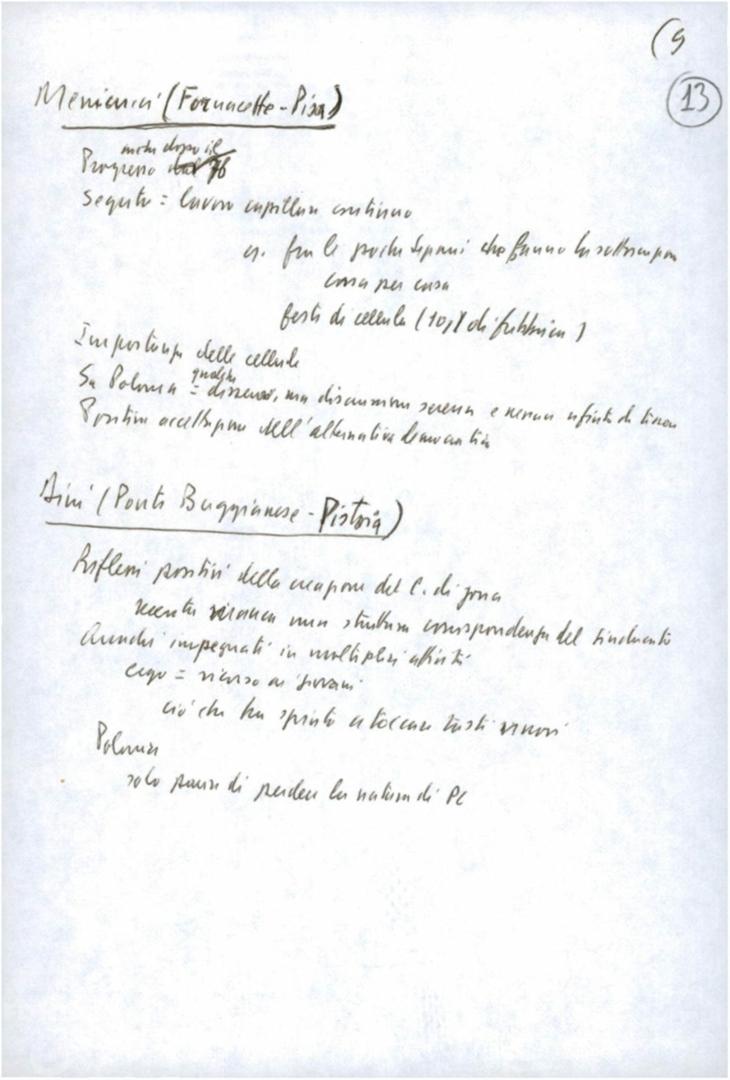 (9
13
Menicucci (Fornacette - Pisa)
anche dopo il
Progresso dal 76
Seguito = lavoro capillare continuo
es. fra le poche sezioni che fanno la sottoscrizion
casa per casa
festa di cellula (di fabbrica)
Importanza delle cellule
qualche
Su Polonia = dissenso, ma discussione serena e nessun rifiuto di tessera
Positiva accettazione dell'alternativa democratica
(Ponte Buggianese - Pistoia)
Riflessi positivi della creazione del C. di zona
una struttura corrispondenza del sindacato
Anziani impegnati in molteplici attività
ergo = ricorso ai giovani
ciò che ha spinto a toccare tasti nuovi
Polonia
solo paura di perdere la natura di PC